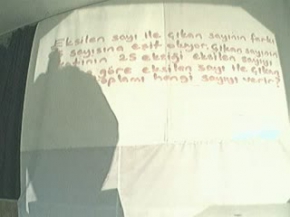 Eksilen sayı ile çıkan sayının farkı
sayısına eşit oluyor. Çıkan sayının
25 eksiği eksilen sayıyı
göre eksilen sayı ile çıkan
toplamı hangi sayıyı verir?